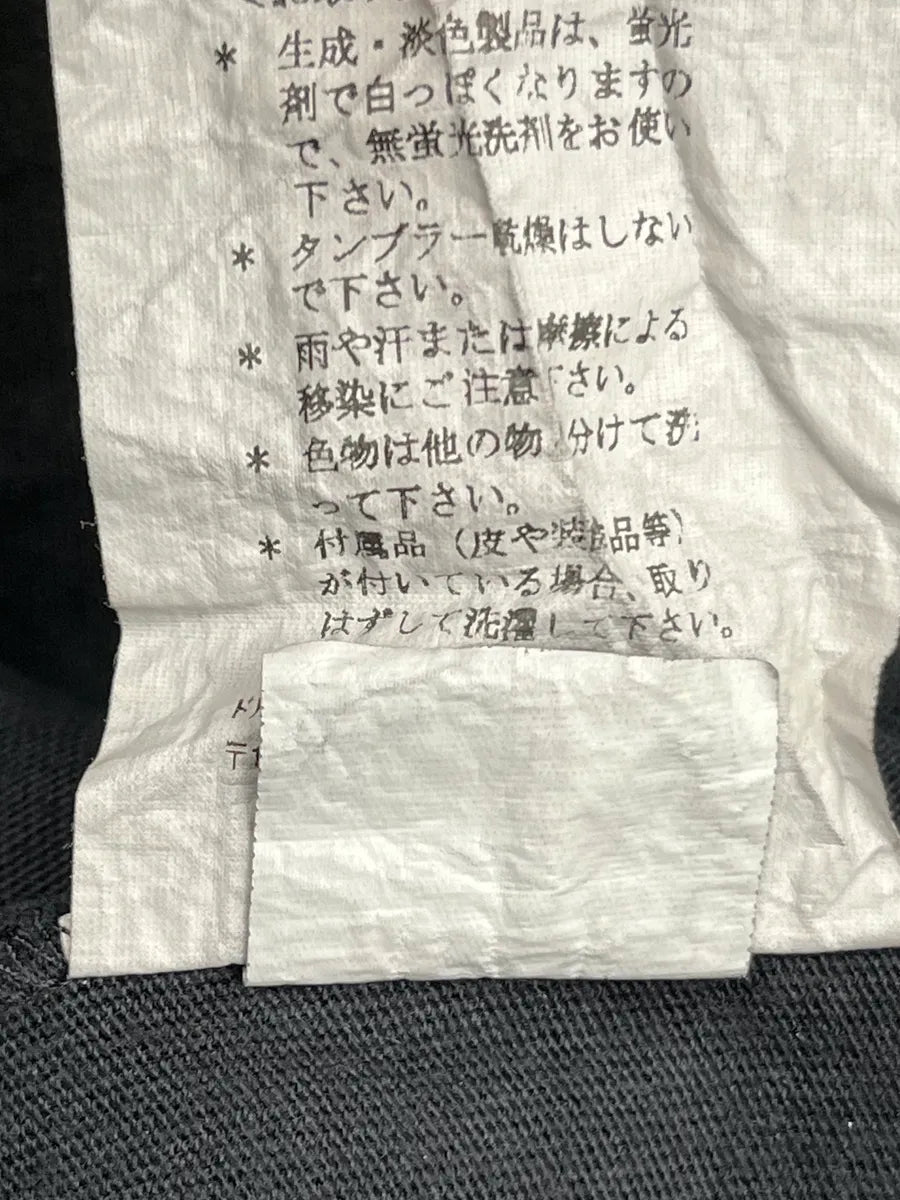 * 生成・淡色製品は、蛍光
剤で白っぽくなりますの
で、無蛍光洗剤をお使い
下さい。
* タンブラー乾燥はしない
で下さい。
* 雨や汗または摩擦による
移染にご注意下さい。
* 色物は他の物 分けて洗
って下さい。
* 付属品（皮や装飾品等）
が付いている場合、取り
はずして洗濯して下さい。
〒